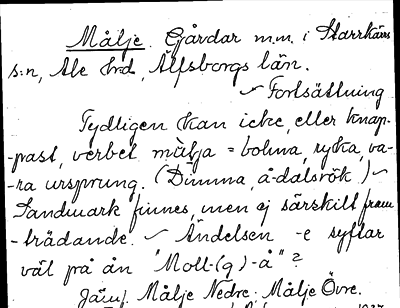 Målje. Gårdar m.m. i Starrkärrs
s:n, Ale hrd, Älfsborgs län.
Fortsättning
Tydligen kan icke, eller knap-
-past, verbet mulja = bolma, ryka, va-
-ra ursprung. (Dimma, å-dalsrök)
Sandmark finnes, men ej särskilt fram
-trädande. Ändelsen -e syftar
väl på ån "Moll-(g)-å"?
Jämf. Målje Nedre: Målje Övre.